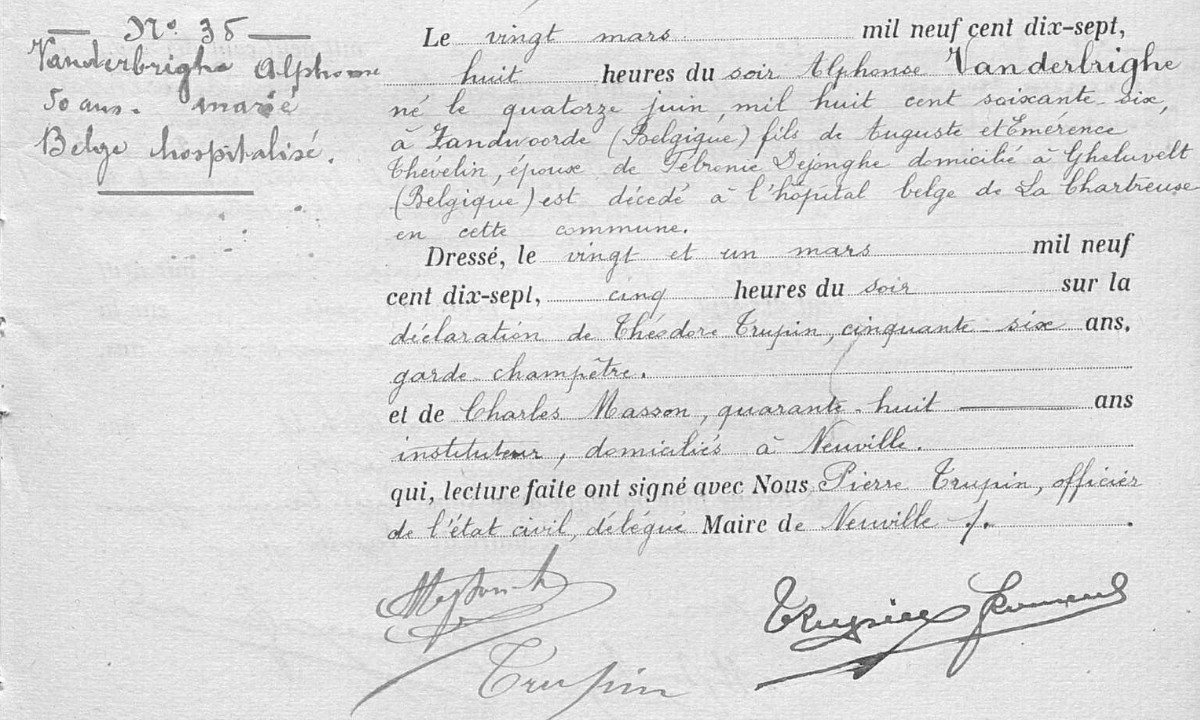 N° 35
Vanderbrighe Alphonse
50 ans. marié
Belge hospitalisé.
Le vingt mars mil neuf cent dix-sept,
huit heures du soir Alphonse Vanderbrighe
né le quatorze juin, mil huit cent soixante-six,
à Zandvoorde (Belgique) fils de Auguste et Emérence
Thévelin, époux de Fébronie Dejonghe domicilié à Gheluvelt
(Belgique) est décédé à l'hôpital belge de La Chartreuse
en cette commune.
Dressé, le vingt et un mars mil neuf
cent dix-sept, cinq heures du soir sur la
déclaration de Théodore Trupin, cinquante-six ans.
garde champêtre.
et de Charles Masson, quarante-huit ans
instituteur, domiciliés à Neuville.
qui, lecture faite ont signé avec Nous Pierre Trupin, officier
de l'état civil, délégué Maire de Neuville /.
Trupin